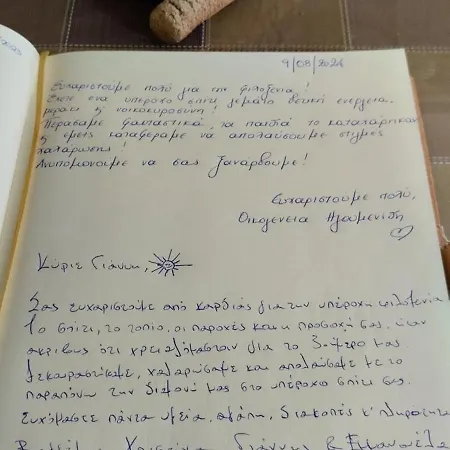 9/08/2024
Ευχαριστούμε πολύ για την φιλοξενία!
Έχετε ένα υπέροχο σπίτι γεμάτο θετική ενέργεια,
μεράκι & νοικοκυροσύνη!
Περάσαμε φανταστικά, τα παιδιά το καταχάρηκαν
& εμείς καταφέραμε να απολαύσουμε στιγμές
χαλάρωσης!
Ανυπομονούμε να σας ξαναρθουμε!
Ευχαριστούμε πολύ,
Οικογένεια
Κύριε Γιάννη,
Σας ευχαριστούμε από καρδιάς για την υπέροχη φιλοξενία
Το σπίτι, το τοπίο, οι παροχές και η προσοχή σας, ήταν
ακριβώς ότι χρειαζόμασταν για το διήμερο μας.
Ξεκουραστήκαμε, χαλαρώσαμε και απολαύσαμε με το
παραπάνω την διαμονή μας στο υπέροχο σπίτι σας.
Ευχόμαστε πάντα υγεία, αγάπη, διακοπές κ'
Χριστίνα, Γιάννης & Εμμανουέλα